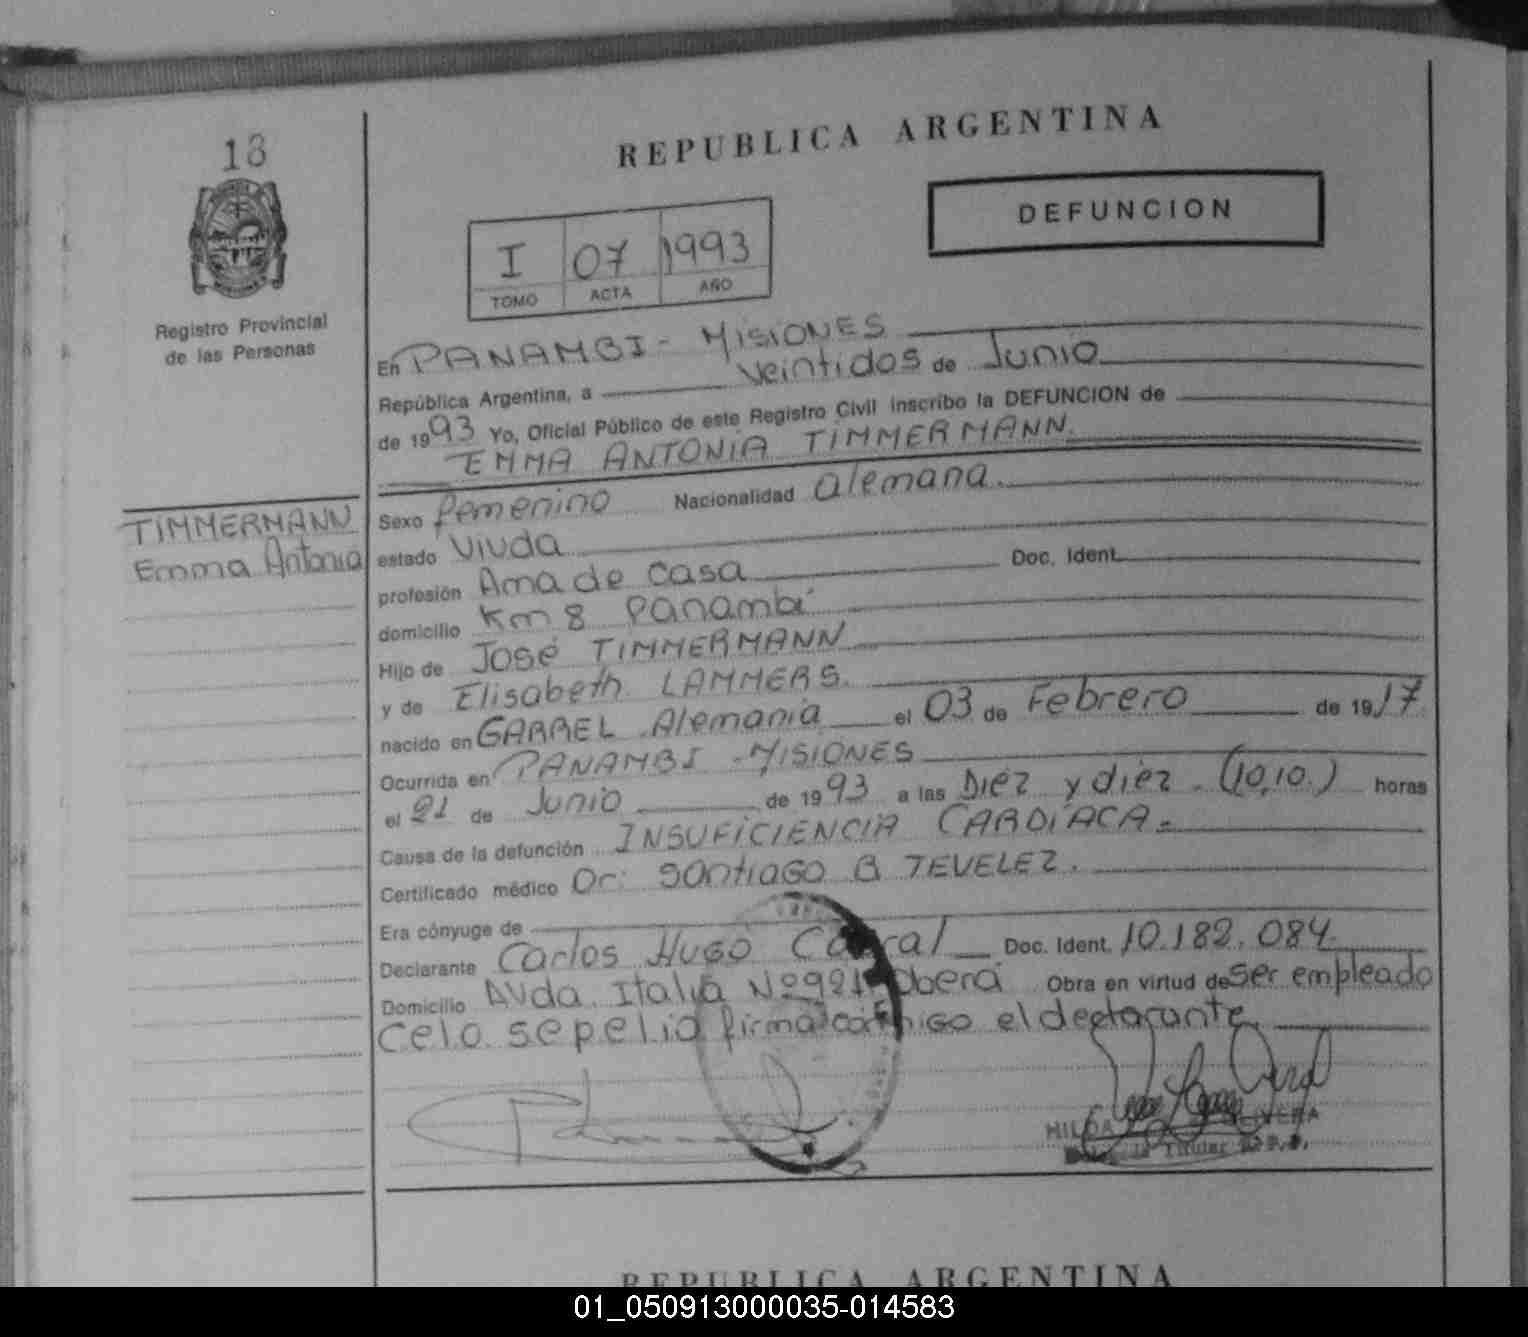 13
REPUBLICA ARGENTINA
DEFUNCION
I 07 1993
TOMO ACTA AÑO
Registro Provincial
de las Personas
En PANAMBI - MISIONES
República Argentina, a veintidos de Junio
de 1993 Yo, Oficial Público de este Registro Civil inscribo la DEFUNCION de
EMMA ANTONIA TIMMERMANN.
TIMMERMANN
Emma Antonia
Sexo femenino Nacionalidad alemana.
estado Viuda
Doc. Ident.
profesión Ama de casa
domicilio Km 8 Panambí
Hijo de José TIMMERMANN
y de Elisabeth LAMMERS.
nacido en GARREL Alemania el 03 de Febrero de 1917
Ocurrida en PANAMBI - MISIONES
el 21 de Junio de 1993 a las Diéz y diéz (10,10.) horas
Causa de la defunción INSUFICIENCIA CARDÍACA.
Certificado médico Dr: Santiago B TEVELEZ.
Era cónyuge de
Declarante Carlos Hugo Cabral Doc. Ident. 10.182.084
Domicilio Avda. Italia Nº921 Oberá Obra en virtud de Ser empleado
Celo sepelio firma conmigo el declarante
HILDA OLIVERA
Titular
REPUBLICA ARGENTINA
01_050913000035-014583